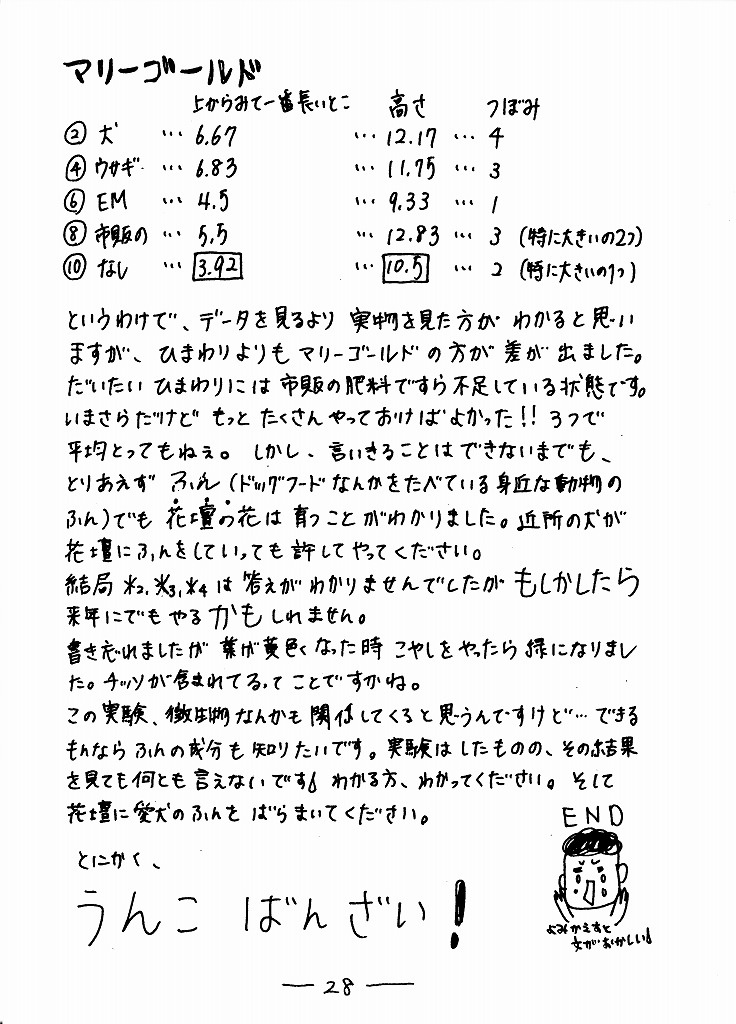 マリーゴールド
上からみて一番長いとこ 高さ つぼみ
② 犬 … 6.67 … 12.17 … 4
④ ウサギ … 6.83 … 11.75 … 3
⑥ EM … 4.5 … 9.33 … 1
⑧ 市販の … 5.5 … 12.83 … 3 (特に大きいの2つ)
⑩ なし … 3.92 … 10.5 … 2 (特に大きいの1つ)
というわけで、データを見るより 実物を見た方が わかると思い
ますが、ひまわりよりも マリーゴールドの方が 差が 出ました。
だいたい ひまわりには 市販の肥料ですら不足している状態です。
いまさらだけど もっと たくさん やっておけばよかった!! 3つで
平均とってもねぇ。 しかし、言いきることは できないまでも、
とりあえず ふん(ドッグフードなんかをたべている 身近な動物の
ふん)でも 花壇の花は 育つことがわかりました。近所の犬が
花壇にふんをしていっても 許してやってください。
結局 *2,*3,*4 は 答えが わかりませんでしたが もしかしたら
来年にでも やる かも しれません。
書き忘れましたが 葉が黄色くなった時 こやしをやったら 緑になりまし
た。チッソが含まれてるってことですかね。
この実験、微生物なんかも 関係してくると思うんですけど… できる
もんなら ふんの成分も 知りたいです。実験はしたものの、その結果
を見ても何とも 言えないです! わかる方、わかってください。そして
花壇に愛犬のふんを ばらまいてください。
END
とにかく、
うんこ ばんざい!
よみかえすと
文がおかしい!
— 28 —